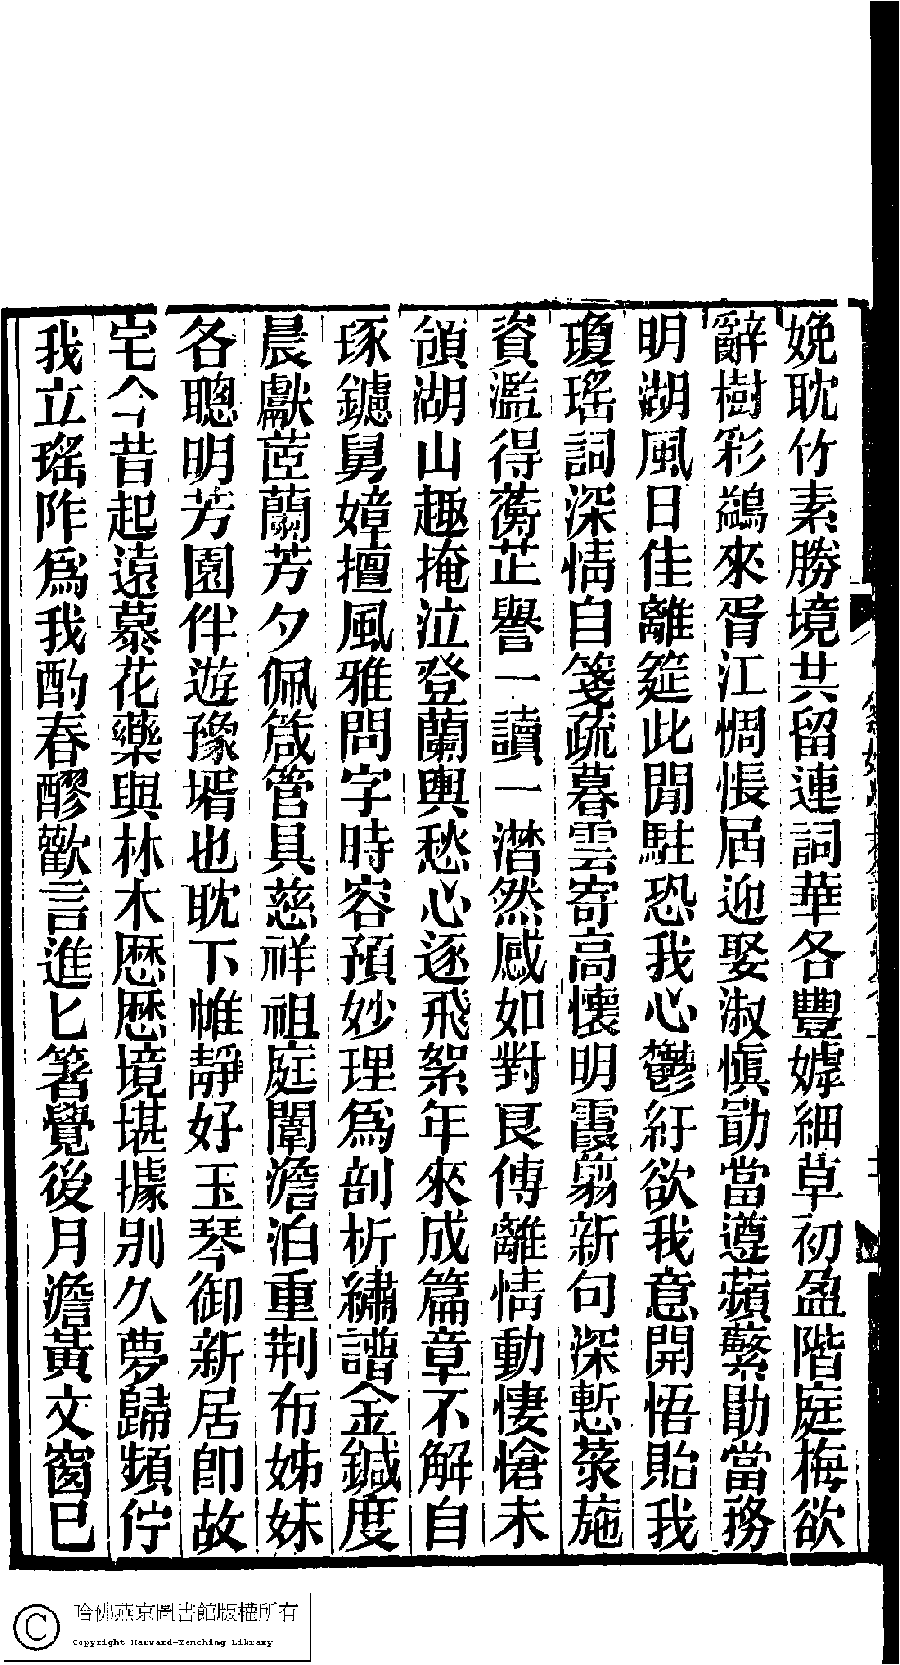 娩耽竹素勝境共留連詞華各豐嫭細草初盈階庭梅欲
辭樹彩鷁來胥江惆悵屆迎娶淑慎勖當遵蘋蘩勛當務
明湖風日佳離筵此閒駐恐我心鬱紆欲我意開悟貽我
瓊瑤詞深情自箋疏暮雲寄高懷明霞翦新句深慙葑施
資濫得蘅芷譽一讀一潸然慼如對艮傳離情動悽愴未
領湖山趣掩泣登蘭輿愁心逐飛絮年來成篇章不解自
琢鑢舅嫜擅風雅問字時容預妙理為剖析繡譜金鍼度
晨獻茝蘭芳夕佩箴管具慈祥祖庭闈澹泊重荆布姊妹
各聰明芳園伴遊豫壻也耽下帷靜好玉琴御新居卽故
宅今昔起遠慕花藥與林木歷歷境堪據别久夢歸頻佇
我立瑤阼為我酌春醪歡言進匕箸覺後月澹黃文窗已
哈佛燕京圖書館版權所有
Copyright Harvard-Yenching Library